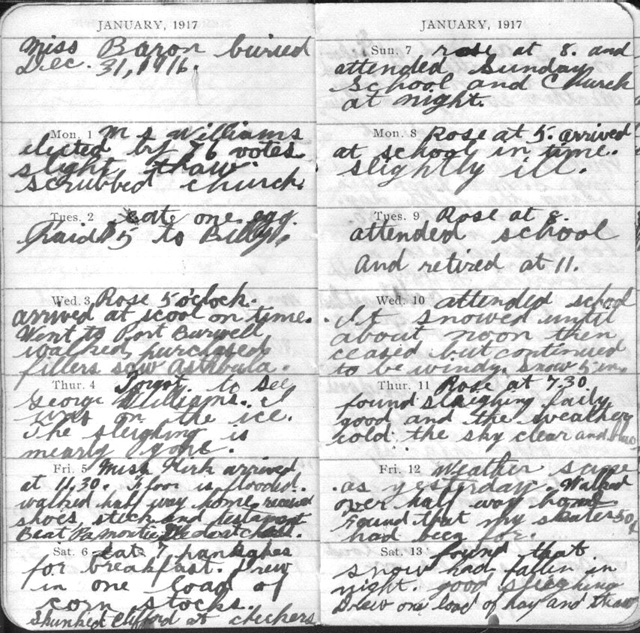 JANUARY, 1917
Miss Baron buried
Dec. 31, 1916.
Mon. 1 M s Williams
elected by 76 votes
slight thaw
scrubbed church.
Tues. 2 eat one egg.
Paid $5 to Billy.
Wed. 3 Rose 5 o'clock.
arrived at scool on time.
Went to Port Burwell
walked, purchased
fillers saw Astbula.
Thur. 4 Forgot to see
George Williams. I
was on the ice.
The sleighing is
nearly gone.
Fri. 5 Miss Kirk arrived
at 11,30. Floor is flooded.
walked half way home, received
shoes, stock and
Beat
Sat. 6 eat 7 pancakes
for breakfast. Drew
in one load of
corn stocks.
Skunked Clifford at checkers
JANUARY, 1917
Sun. 7 rose at 8. and
attended Sunday
School and Church
at night.
Mon. 8 Rose at 5. arrived
at school in time.
slightly ill.
Tues. 9 Rose at 8.
attended school
and retired at 11.
Wed. 10 attended school
It snowed until
about noon then
ceased but continued
to be windy. snow 5 in.
Thur. 11 Rose at 7.30.
found sleighing faily
good and the weather
cold the sky clear and
Fri. 12 Weather same
as yesterday. Walked
over half way home
Found that my skates
had been
Sat. 13 found that
snow had fallen in
night. good sleighing
Drew one load of hay and